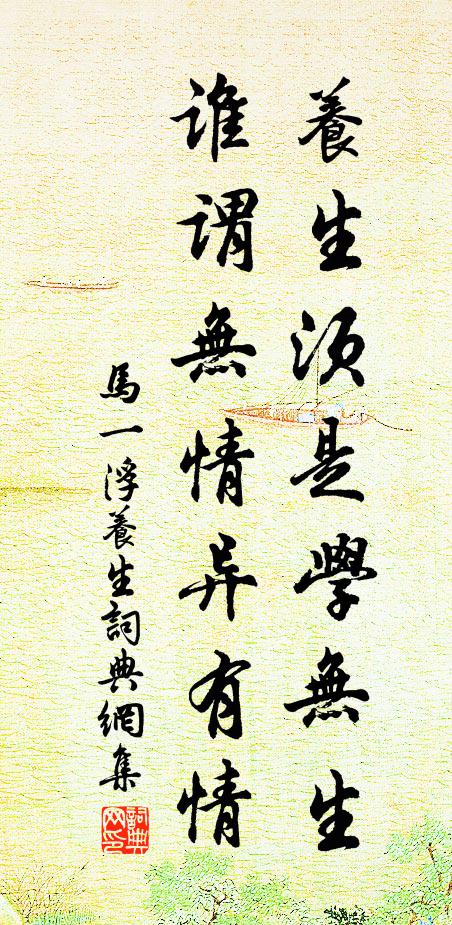 養生須是學無生
誰謂無情异有情
馬一浮養生詞典網集
詞典
网印